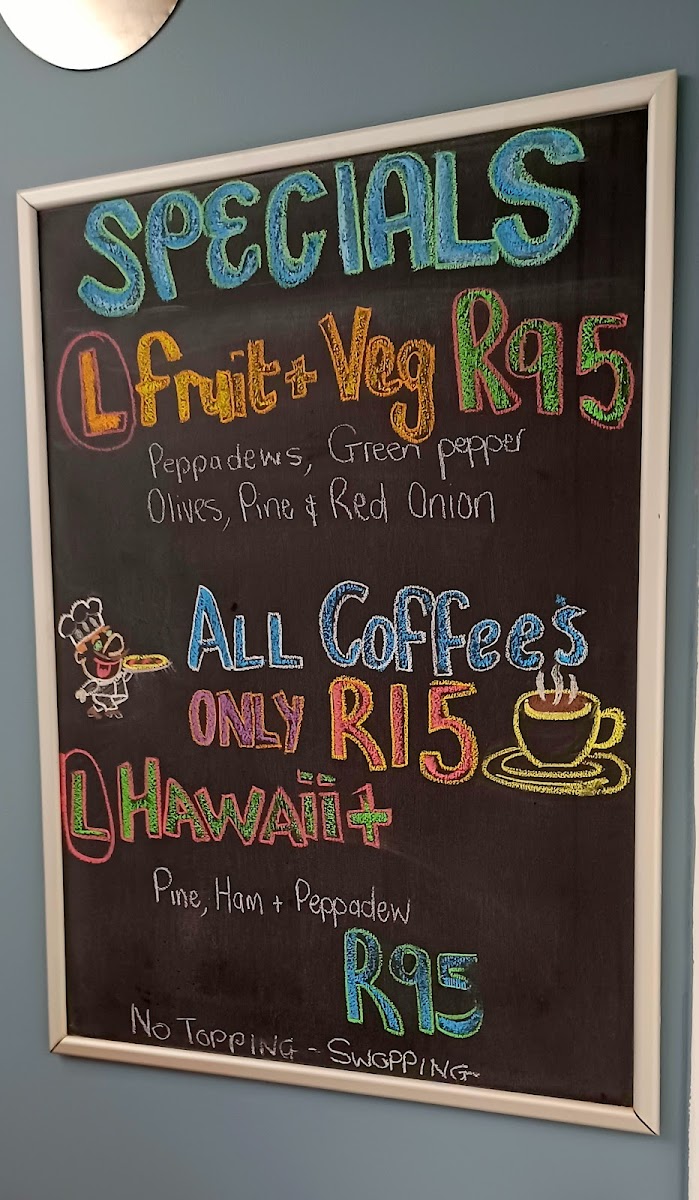 SPECIALS
L fruit + Veg R95
Peppadews, Green pepper
Olives, Pine & Red Onion
ALL Coffee's
ONLY R15
L HAWAii+
Pine, Ham + Peppadew
R95
NO TOPPING - SWOPPING